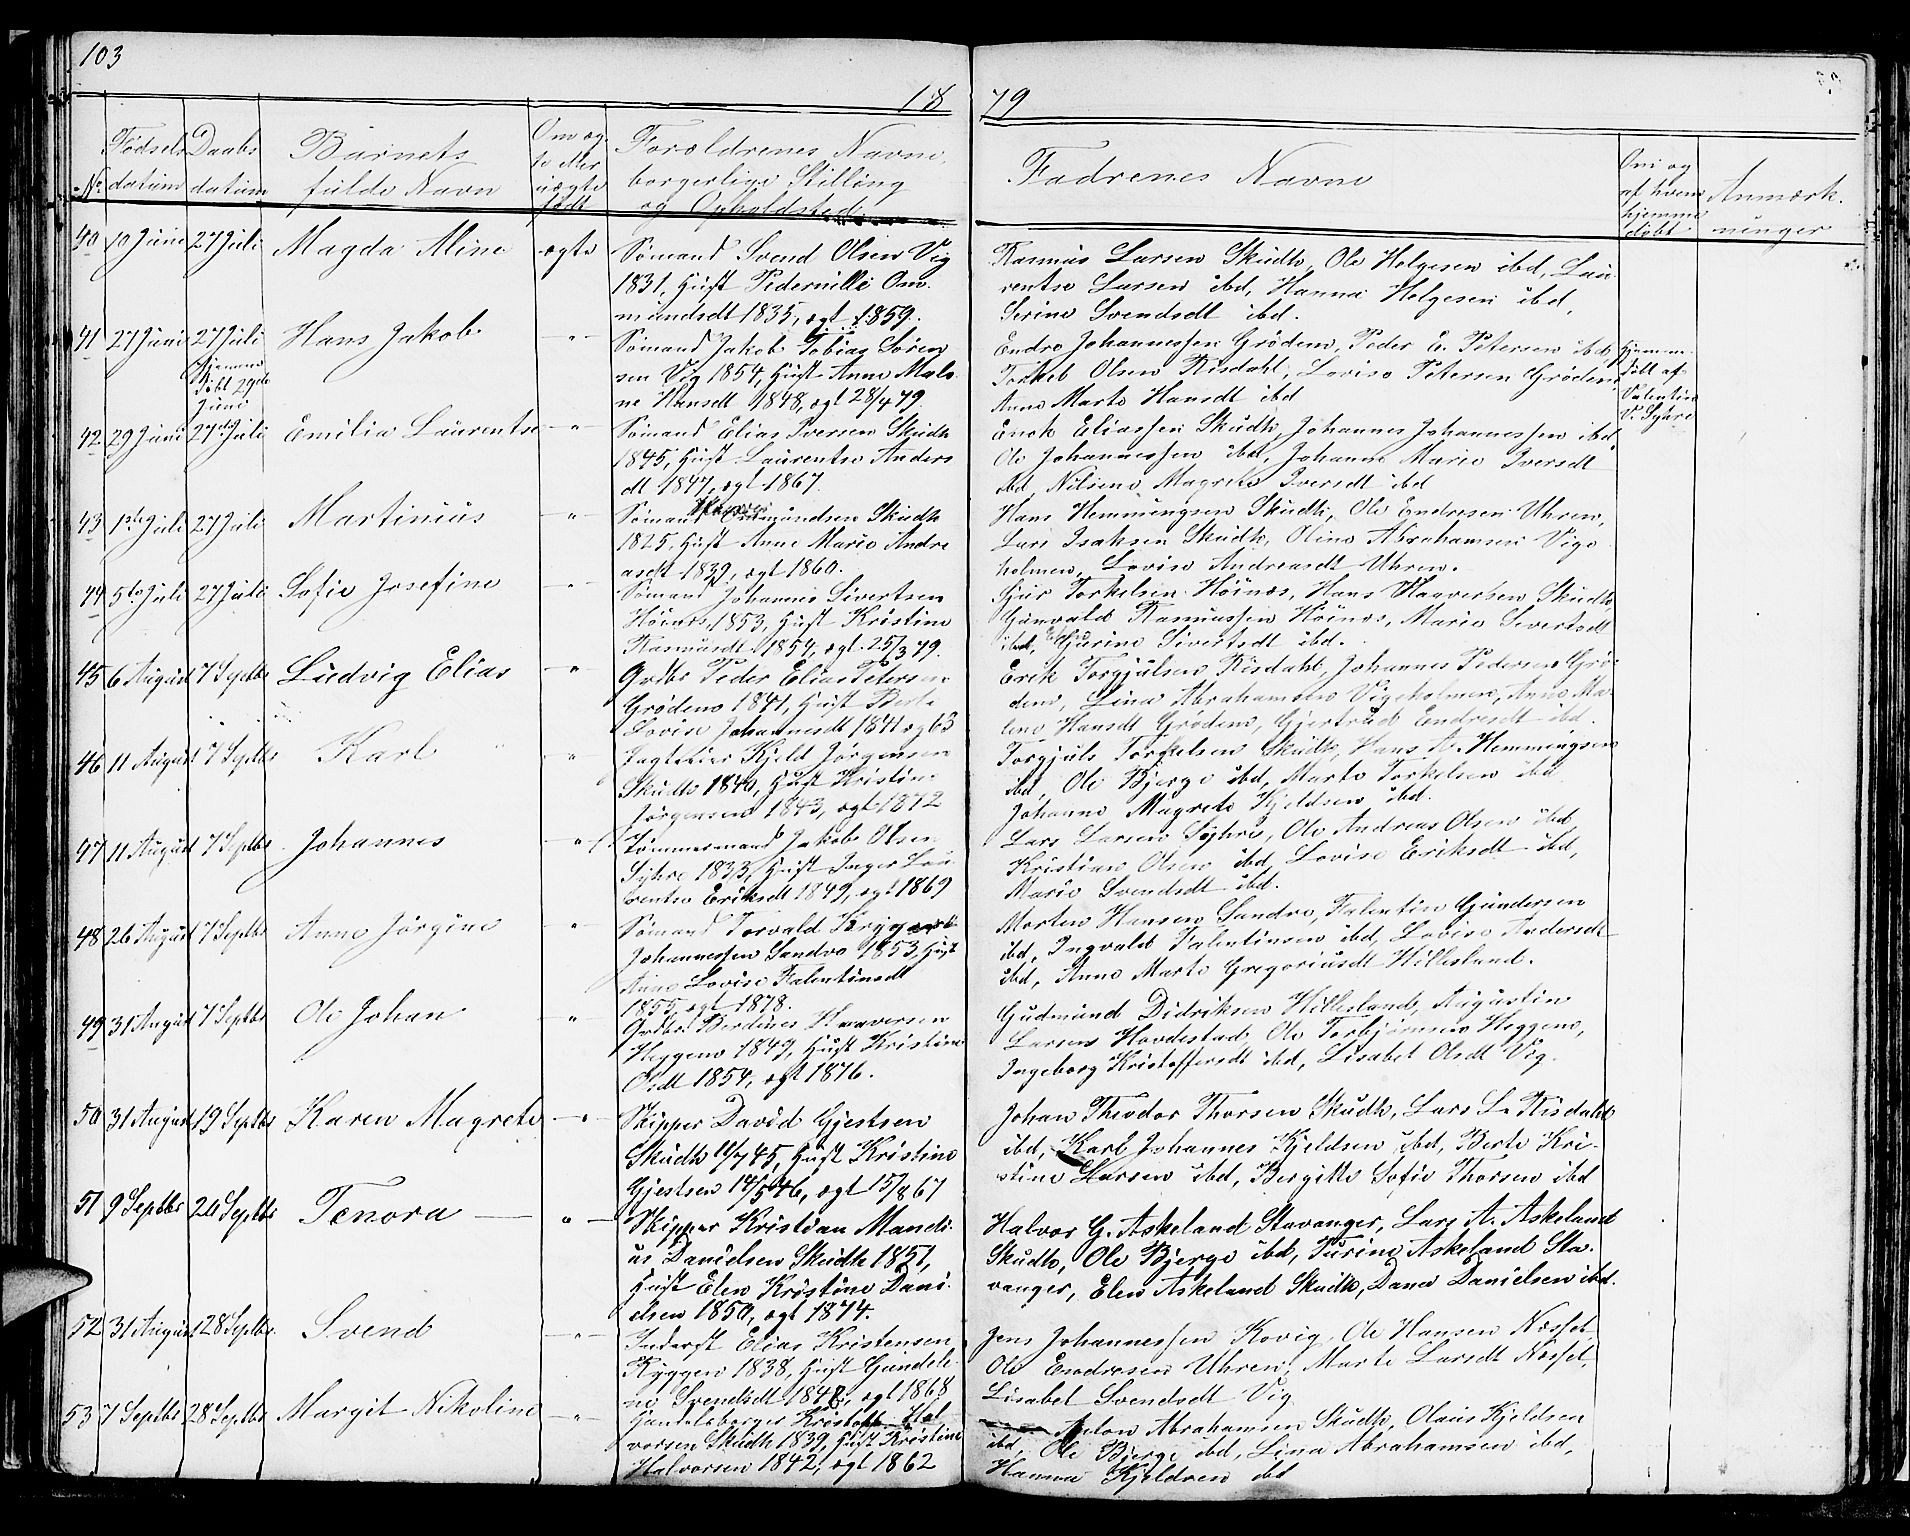 103
18 79
No Fødsels datum Daabs datum Barnets fulde Navn Om ægte eller uægte født Forældrenes Navne, borgerlige Stilling og Opholdsted Fadrenes Navne Om og af hvem hjemme døbt Anmærkninger
40 10 Juni 27 Juli Magda Aline ægte Sømand Svend Olsen Vig
1831, Hust Pedernille Om.
mundsdt 1835, ægt 1859.
Rasmus Larsen Skudh, Ole Helgesen ibd, Lau
rentse Larsen ibd, Hanna Helgesen ibd,
Serine Svendsdt ibd.
41 27 Juni 27 Juli Hans Jakob -"- Sømand Jakob Tobias Søren
Hjemme
døbt 29de
Juni
sen Vig 1854, Hust Anne Male
ne Hansdt 1848, ægt 28/4 79
Endre Johannessen Grødem, Peder E. Petersen ibd,
Torkel Olsen Risdahl, Lovise Petersen Grødem
Anne Marte Hansdt ibd
hjemme-
døbt af
Valentin
V. Syhre
42 29 Juni 27de Juli Emilia Laurentse -"- Sømand Elias Iversen Skudh
1845, Hust Laurentse Anders
dt 1847, ægt 1867.
Enok Eliassen Skudh, Johannes Johannessen ibd
Ole Johannessen ibd, Johanne Marie Iversdt
ibd, Nilsine Magrete Iversdt ibd
43 1ste Juli 27 Juli Martinius -"- Sømand Ommundsen Skudh
1825, Hust Anne Marie Andre
asdt 1839, ægt 1860.
Hans Hemmingsen Skudh, Ole Endresen Uhren,
Lars Isaksen Skudh, Oline Abrahamsen Vige
holmen, Lovise Andreasdt Uhren.
44 5te Juli 27 Juli Sofie Josefine -"- Sømand Johannes Sivertsen
Høinæs, 1853, Hust Kristine
Rasmusdt 1859, ægt 25/3 79.
Sjur Torkelsen Høinæs, Hans Haaversen Skudh
Gunvald Rasmussen Høinæs, Marie Sivertsdt
ibd, Gjurine Sivertsdt ibd.
45 6 August 7 Septbr Ludvig Elias -"- Grdbr Peder Elias Petersen
Grødem 1841, Hust Berte
Lovise Johannesdt 1841 ægt 63
Erik Torgjulsen Risdahl, Johannes Pedersen Grø
dem, Lina Abrahamsen Vigeholmen, Anne Ma-
lene Hansdt Grødem, Gjertrud Endresdt ibd.
46 11 August 7 Septbr Karl " Jagteier Kjeld Jørgensen
Skudh 1840, Hust Kristine
Jørgensen 1843, ægt 1872
Torgjuls Torkelsen Skudh, Hans A. Hemmingsen
ibd, Ole Bjerge ibd, Marte Torkelsen ibd
Johanne Magrete Kjeldsen ibd.
47 11 August 7 Septbr Johannes -"- Tømmermand Jakob Olsen
Syhre 1833, Hust Inger Lau
rentse Eriksdt 1849, ægt 1869
Lars Larsen Syhre, Ole Andreas Olsen ibd
Kristian Olsen ibd, Lovise Eriksdt ibd,
Marie Svendsdt ibd.
48 26 August 7 Septbr Anne Jørgine " Sømand Torvald
Johannessen Sandve 1853, Hust
Anne Lovise Falentinsdt
1855, ægt 1878.
Morten Hansen Sandve, Falentin Gundersen
ibd, Ingvald Falentinsen ibd, Lovise Andersdt
ibd, Anne Marte Gregoriusdt Hillesland.
49 31 August 7 Septbr Ole Johan " Grdbr Berdines Haaversen
Heggem 1849, Hust Kristine
Olsdt 1854, ægt 1876.
Gudmund Didriksen Hillesland, Augustin
Larsen Hovdestad, Ole Torbjørnsen Heggem,
Ingeborg Kristoffersdt ibd, Lisabet Olsdt Vig.
50 31 August 19 Septbr Karen Magrete -"- Skipper David Gjestsen
Skudh 11/7 45, Hust Kristine
Gjestsen 14/5 46, ægt 15/8 67
Johan Theodor Thorsen Skudh, Lars L. Risdahl
ibd, Karl Johannes Kjeldsen ibd, Berte Kri-
stine Larsen ibd, Bergitte Sofie Thorsen ibd
51 9 Septbr 20 Septbr Tenora -"- Skipper Kristian Mandi-
us Danielsen Skudh 1851,
Hust Elen Kristine Dani-
elsen 1850, ægt 1874.
Halvor G. Askeland Stavanger, Lars A. Askeland
Skudh, Ole Bjerge ibd, Turine Askeland Sta-
vanger, Elen Askeland Skudh, Dana Danielsen ibd.
52 31 August 28 Septbr Svend -"- Inderst Elias Kristensen
Ryggen 1838, Hust Gundele
ne Svendsdt 1848, ægt 1868
Jens Johannessen Kovig, Ole Hansen Næsset
Ole Endresen Uhren, Marte Larsdt Næsset,
Lisabet Svendsdt Vig
53 7 Septbr 28 Septbr Margit Nikoline -"- Handelsborger Kristoff Hal
vorsen Skudh 1839, Hust Kristine
Halvorsen 1842, ægt 1862
Anton Abrahamsen Skudh, Olaus Kjeldsen
ibd, Ole Bjerge ibd, Lina Abrahamsen ibd,
Hanna Kjeldsen ibd